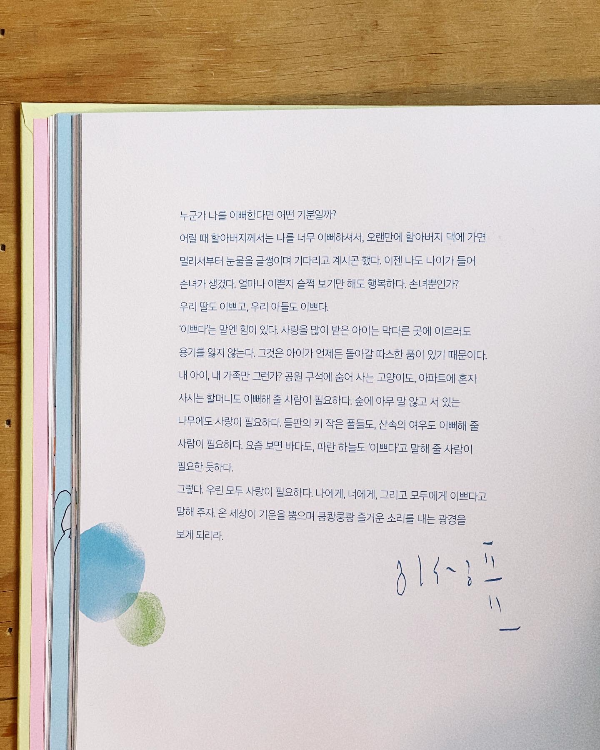 누군가 나를 이뻐한다면 어떤 기분일까?
어릴 때 할아버지께서는 나를 너무 이뻐하셔서, 오랜만에 할아버지 댁에 가면
멀리서부터 눈물을 글썽이며 기다리고 계시곤 했다. 이젠 나도 나이가 들어
손녀가 생겼다. 얼마나 이쁜지 슬쩍 보기만 해도 행복하다. 손녀뿐인가?
우리 딸도 이쁘고, 우리 아들도 이쁘다.
'이쁘다'는 말엔 힘이 있다. 사랑을 많이 받은 아이는 막다른 곳에 이르러도
용기를 잃지 않는다. 그것은 아이가 언제든 돌아갈 따스한 품이 있기 때문이다.
내 아이, 내 가족만 그런가? 공원 구석에 숨어 사는 고양이도, 아파트에 혼자
사시는 할머니도 이뻐해 줄 사람이 필요하다. 숲에 아무 말 않고 서 있는
나무에도 사랑이 필요하다. 들판의 키 작은 풀들도, 산속의 여우도 이뻐해 줄
사람이 필요하다. 요즘 보면 바다도, 파란 하늘도 '이쁘다'고 말해 줄 사람이
필요한 듯하다.
그렇다. 우린 모두 사랑이 필요하다. 나에게, 너에게, 그리고 모두에게 이쁘다고
말해 주자. 온 세상이 기운을 뿜으며 쿵쾅쿵쾅 즐거운 소리를 내는 광경을
보게 되리라.